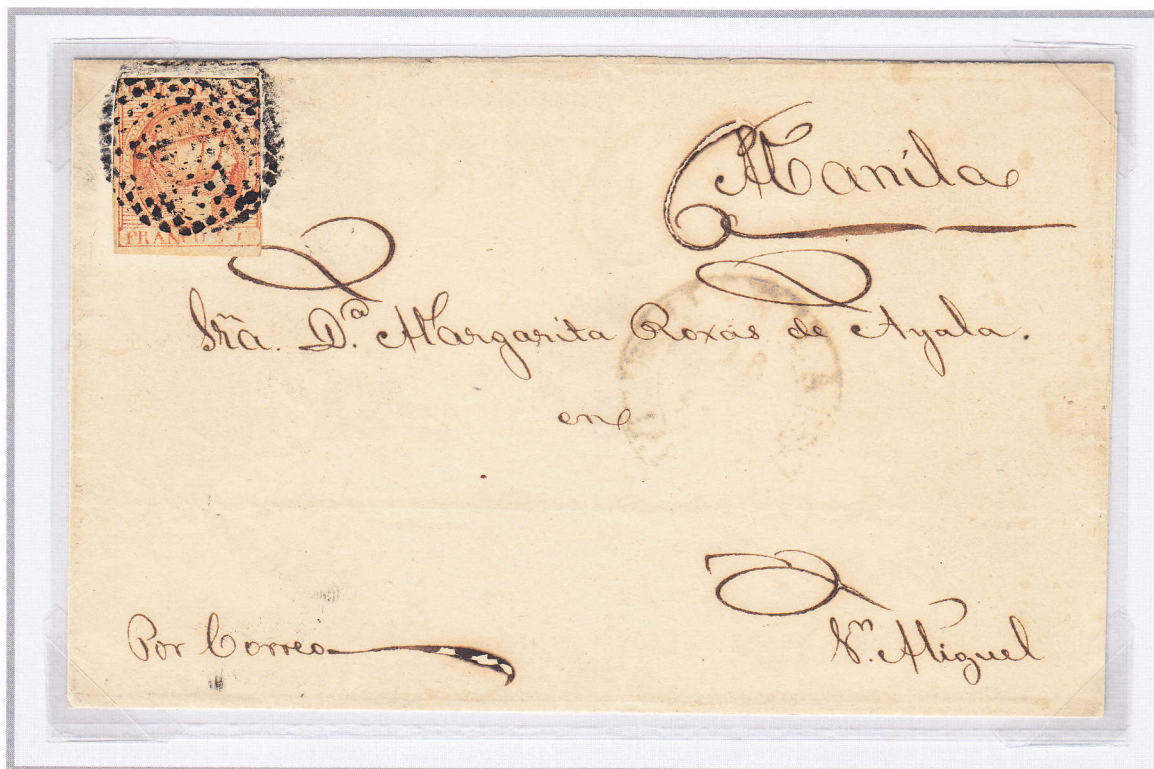 Manila
FRANCO
Sra. Da. Margarita Roxas de Ayala.
en
Sn. Miguel
Por Correo